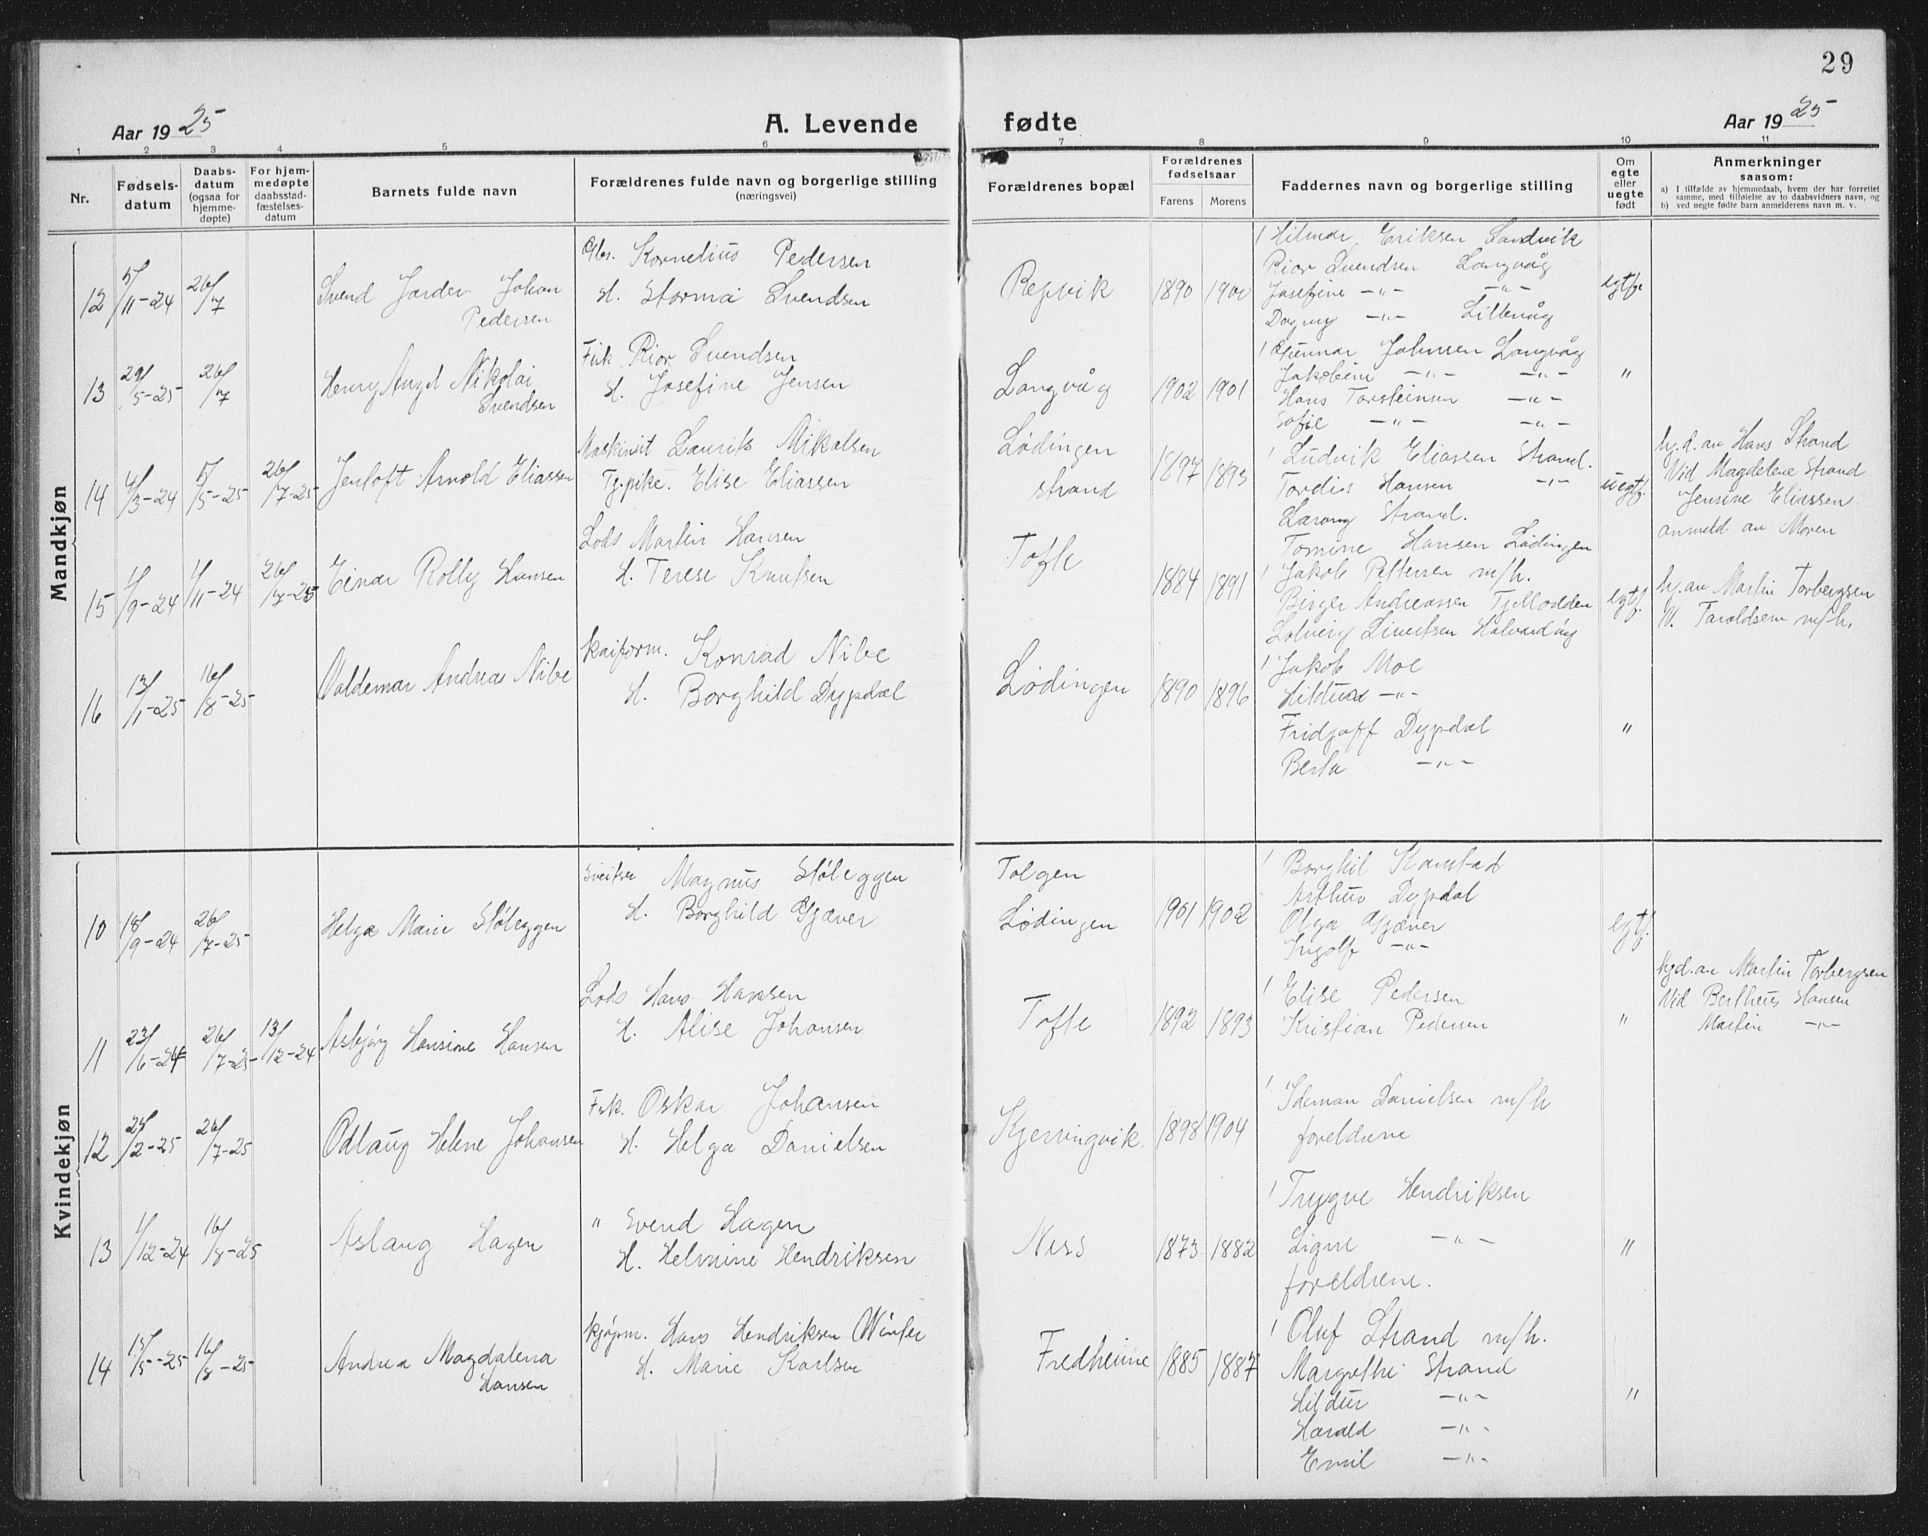 29
Aar 1925 A. Levende fødte Aar 1925
1 2 3 4 5 6 7 8 9 10 11
Nr.
Fødselsdatum
Daabsdatum (ogsaa for hjemmedøpte)
For hjemmedøpte daabsstadfæstelsesdatum
Barnets fulde navn
Forældrenes fulde navn og borgerlige stilling (næringsvei)
Forældrenes bopæl
Forældrenes fødselsaar
Farens Morens
Faddernes navn og borgerlige stilling
Om egte eller uegte født
Anmerkninger saasom:
a) I tilfælde av hjemmedaab, hvem der har forrettet samme, med tilføielse av to daabsvidners navn, og
b) ved uegte fødte barn anmelderens navn m. v.
Mandkjøn
12 5/11-24 26/7 Svend Johan Pedersen
Kornelius Pedersen
H. Storma Svendsen
Repvik 1890 1900
Hilmar Eriksen Sandvik
Rior Svendsen Langvåg
Josefine -"- -"-
Dagny -"- Littevåg
egtf.
13 29/5-25 26/7 Henry Angel Nikolai Svendsen
Fisk. Rior Svendsen
H. Josefine Jensen
Langvåg 1902 1901
Gunnar Johnsen Langvåg
Jakobine -"- -"-
Hans Torsteinsen -"-
Sofie -"- -"-
"
14 4/3-24 5/5-25 26/7-25 Jentoft Arnold Eliassen
Maskinist Laurits Mikalsen
Tj.pike. Elise Eliassen
Lødingen strand 1897 1893
Ludvik Eliassen Strand.
Tordis Hansen -"-
Strand.
Tomine Hansen Lødingen
uegtf.
hj.d. av Hans Strand
Vid Magdelene Strand
Jensine Eliassen
anmeld av Moren
15 1/9-24 1/11-24 26/7-25 Einar Rolly Hansen
Lods Martin Hansen
H. Terese Knutsen
Tofte 1884 1891
Jakob Pettersen m/h.
Birger Andreassen Tjellodden
Solveig Sivertsen
egtf.
hj. av Martin Torbergsen
V. Taroldsen m/h.
16 13/1-25 16/8-25 Valdemar Andreas Nibe
kaiform. Konrad Nibe
H. Borghild Dypdal
Lødingen 1890 1896
Jakob Moe
Hildur -"-
Fridjoff Dypdal
Berta -"-
"
Kvindekjøn
10 18/9-24 26/7-25 Helga Marie Støleggen
Sveitser Magnus Støleggen
H. Borghild Gjæver
Tolgen
Lødingen 1901 1902
Borghil Kanstad
Arthur Dypdal
Olga Gjæver
Ingolf -"-
egtf.
11 23/6-24 26/7-25 13/12-24 Asbjørg Hansine Hansen
Lods Hans Hansen
H. Alise Johansen
Tofte 1892 1893
Elise Pedersen
Kristian Pedersen
"
hjd. av Martin Torbergsen
Vid Bertheus Hansen
Martin -"-
12 25/2-25 26/7-25 Odlaug Helene Johansen
Fisk. Oskar Johansen
H. Helga Danielsen
Kjerringvik 1898 1904
Ideman Danielsen m/h
foreldrene
13 1/12-24 16/8-25 Aslaug Hagen
" Svend Hagen
H. Helmine Hendriksen
Ness 1873 1882
Trygve Hendriksen
Signe -"-
foreldrene.
"
14 15/5-25 16/8-25 Andrea Magdalena Hansen
kjøpm. Hans Hendriksen Winter
H. Marie Karlsen
Fredheime 1885 1887
Oluf Strand m/h.
Margrethe Strand
Hildur -"-
Harald -"-
Emil -"-
"